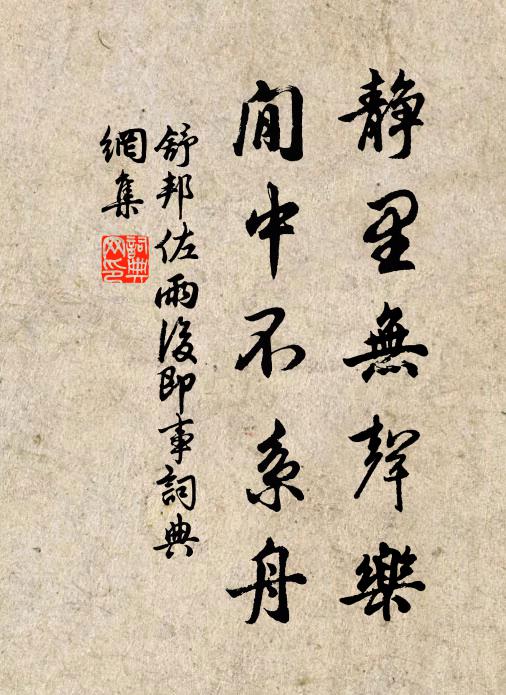 静里無聲樂
閒中不系舟
舒邦佐雨後即事詞典
網集
詞典
网印